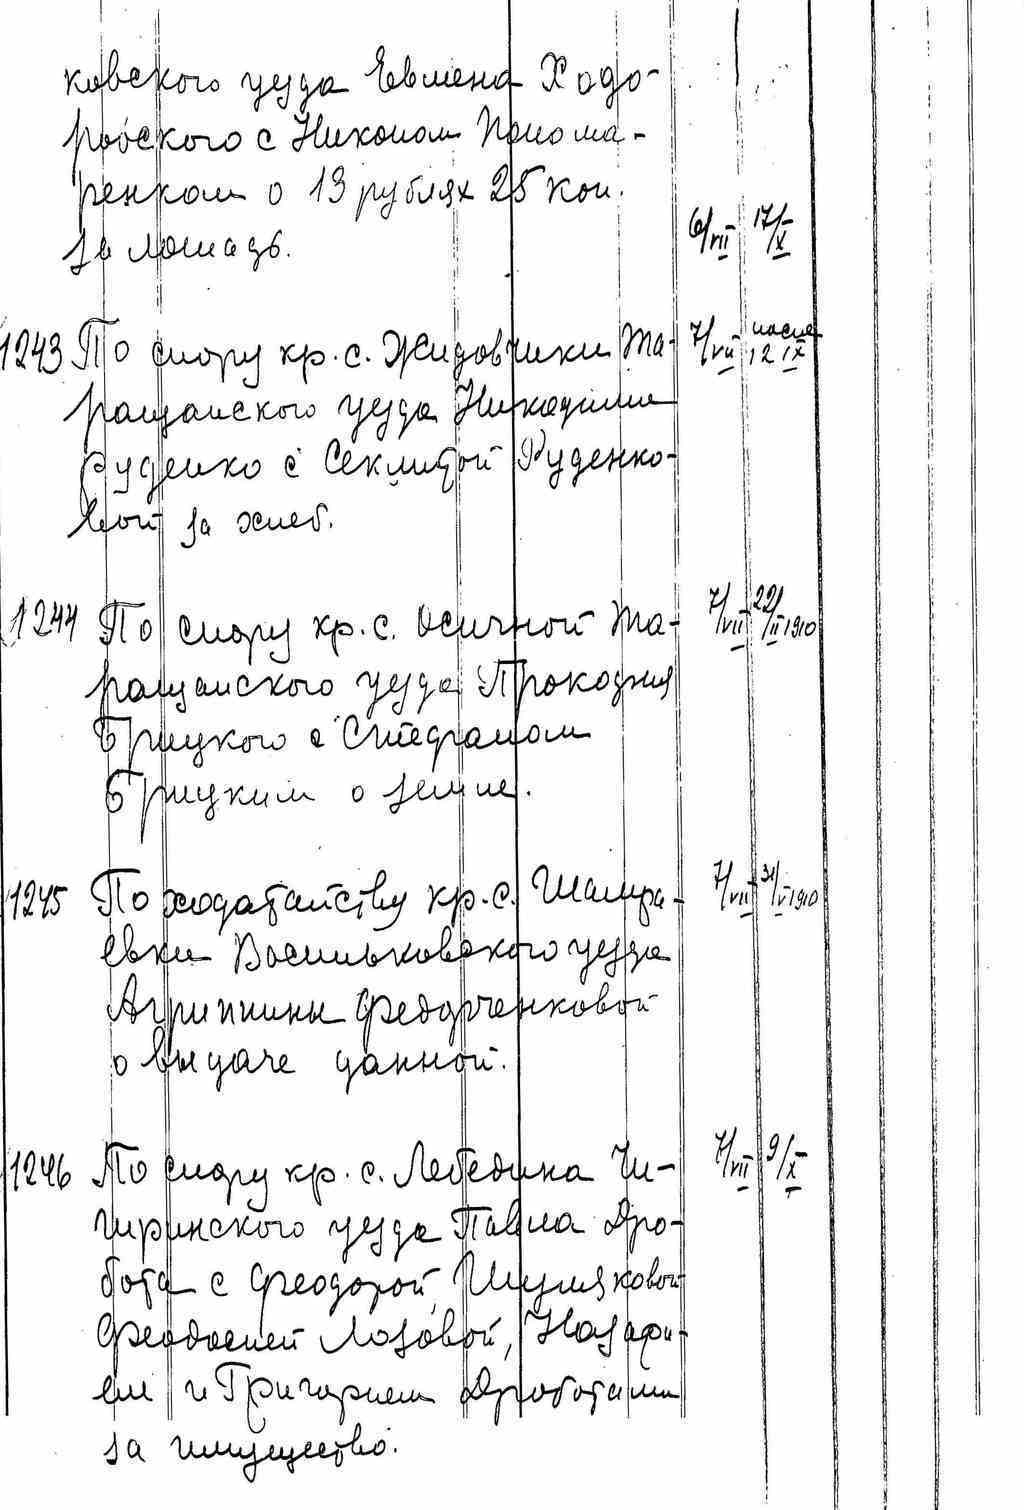 ковского уезда Евмена Ходо-
ровского с Никоном Понома-
ренком о 13 рублях 25 коп.
за лошадь. 6/VII 17/X
1243 По спору кр. с. Жидовчики Та- 7/VII после 12 IX
ращанского уезда Никодима
Руденко с Секлитой Руденко-
вой за хлеб.
1244 По спору кр. с. Осичной Та- 7/VII 22/II 1910
ращанского уезда Прокофия
Брицкого с Стефаном
Брицким о земле.
1245 По ходатайству кр. с. Шамра- 7/VII 31/V 1910
евки Васильковского уезда
Агриппины Федорченковой
о выдаче данной.
1246 По спору кр. с. Лебедина Чи- 7/VII 9/X
гиринского уезда Павла Дро-
бота с Феодорой Шуляковой
Феодосией Лозовой,
и Григорием Дроботами
за имущество.